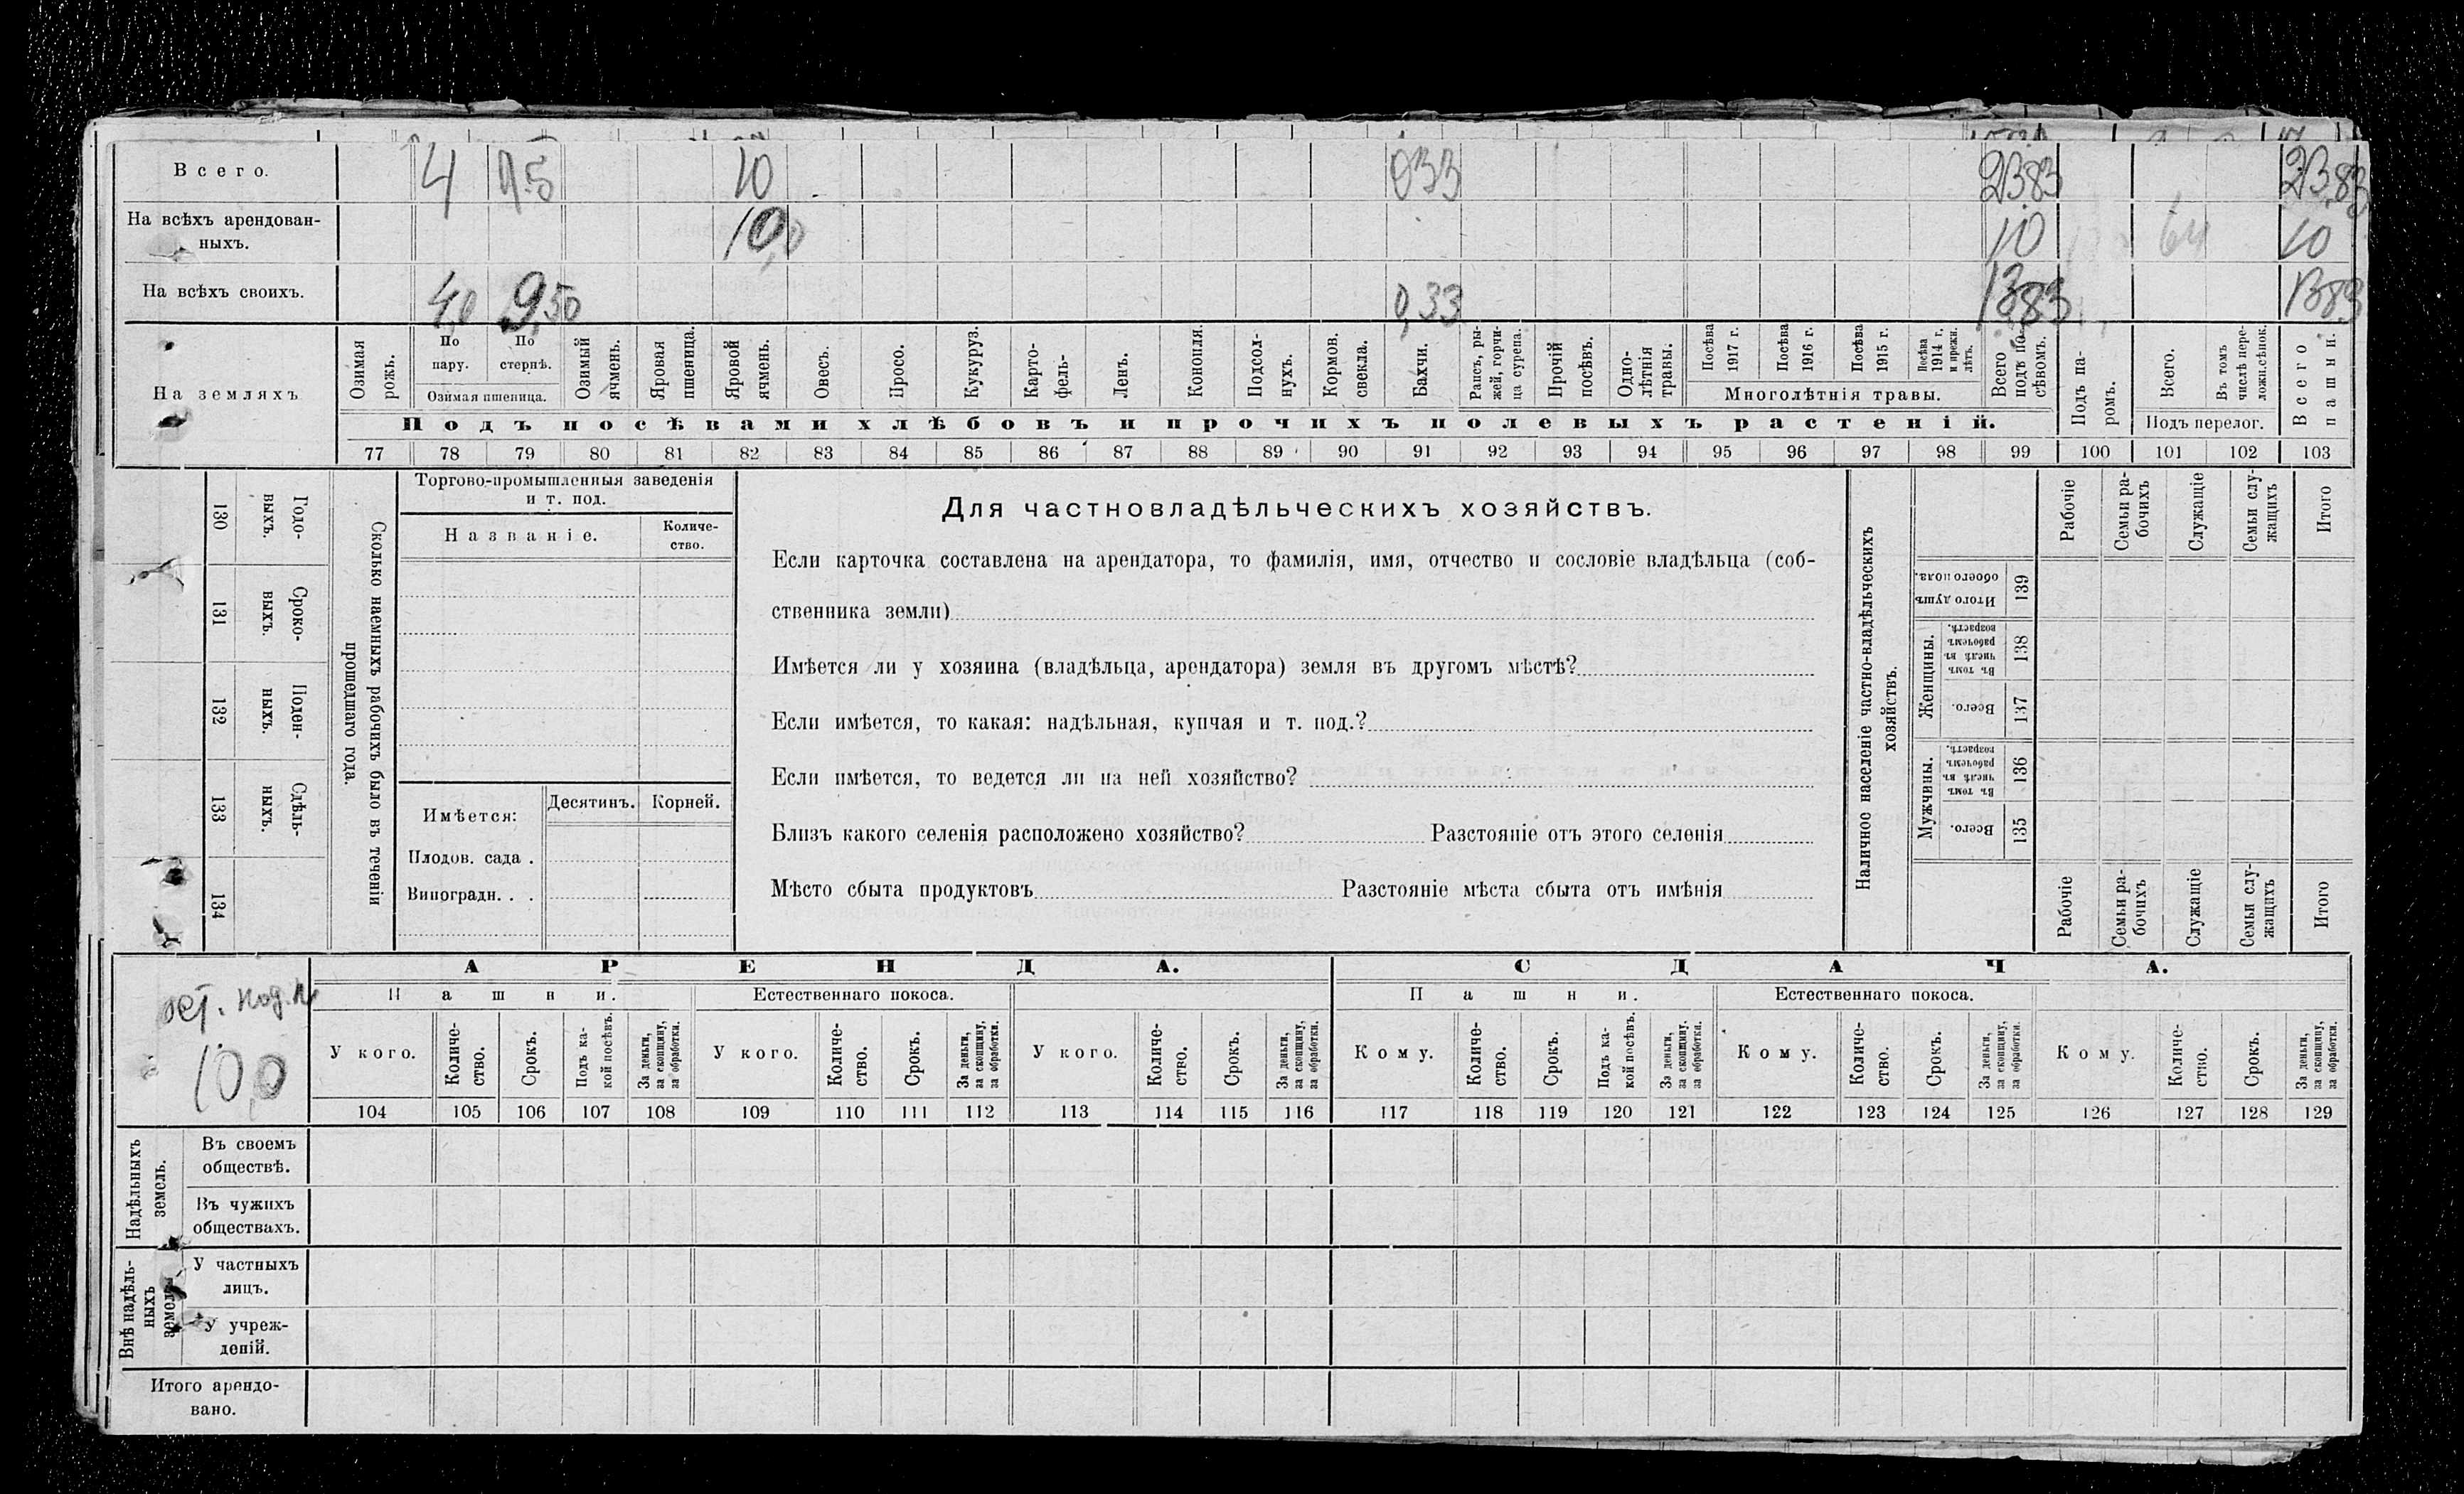 Всего. 4 9.5 10 0.33 23.83 23,83
На всѣхъ арендован-
ныхъ. 10,0 10 64 10
На всѣхъ своихъ. 4,0 9,50 0,33 13.83 13.83
На земляхъ
Озимая рожь.
По пару.
По стернѣ.
Озимая пшеница.
Озимый ячмень.
Яровая пшеница.
Яровой ячмень.
Овесъ.
Просо.
Кукуруз.
Карто-
фель-
Ленъ.
Конопля.
Подсол-
нухъ.
Кормов.
свекла.
Бахчи.
Рапсъ, ры-
жей, горчи-
ца сурепа.
Прочій
посѣвъ.
Одно-
лѣтнія
травы.
Посѣва
1917 г.
Посѣва
1916 г.
Посѣва
1915 г.
Посѣва
1914 г.
и прежн.
лѣтъ.
Многолѣтнія травы.
Всего
подъ по-
сѣвомъ.
Подъ па-
ромъ.
Всего.
Въ томъ
числѣ пере-
ложн.сѣнок.
Подъ перелог.
Всего
пашни.
Подъ посѣвами хлѣбовъ и прочихъ полевыхъ растеній.
77 78 79 80 81 82 83 84 85 86 87 88 89 90 91 92 93 94 95 96 97 98 99 100 101 102 103
Сколько наемныхъ рабочихъ было въ теченіи
прошедшаго года.
Годо-
выхъ.
130
Сроко-
выхъ.
131
Поден-
ныхъ.
132
Сдѣль-
ныхъ.
133
134
Торгово-промышленныя заведенія
и т. под.
Названіе.
Количе-
ство.
Имѣется: Десятинъ. Корней.
Плодов. сада .
Виноградн. . .
Для частновладѣльческихъ хозяйствъ.
Если карточка составлена на арендатора, то фамилія, имя, отчество и сословіе владѣльца (соб-
ственника земли)
Имѣется ли у хозяина (владѣльца, арендатора) земля въ другомъ мѣстѣ?
Если имѣется, то какая: надѣльная, купчая и т. под.?
Если имѣется, то ведется ли на ней хозяйство?
Близъ какого селенія расположено хозяйство? Разстояніе отъ этого селенія
Мѣсто сбыта продуктовъ Разстояніе мѣста сбыта отъ имѣнія
Наличное населеніе частно-владѣльческихъ
хозяйствъ.
Рабочіе
Семьи ра-
бочихъ
Служащіе
Семьи слу-
жащихъ
Итого
Итого душъ
обоего пола.
139
Женщины.
Въ томъ
числѣ въ
рабочемъ
возрастѣ.
138
Всего.
137
Мужчины.
Въ томъ
числѣ въ
рабочемъ
возрастѣ.
136
Всего.
135
Рабочіе
Семьи ра-
бочихъ
Служащіе
Семьи слу-
жащихъ
Итого
10,0
АРЕНДА. СДАЧА.
Пашни. Естественнаго покоса. Пашни. Естественнаго покоса.
У кого.
Количе-
ство.
Срокъ.
Подъ ка-
кой посѣвъ.
За деньги,
за скопщину,
за обработки.
У кого.
Количе-
ство.
Срокъ.
За деньги,
за скопщину,
за обработки.
У кого.
Количе-
ство.
Срокъ.
За деньги,
за скопщину,
за обработки.
Кому.
Количе-
ство.
Срокъ.
Подъ ка-
кой посѣвъ.
За деньги,
за скопщину,
за обработки.
Кому.
Количе-
ство.
Срокъ.
За деньги,
за скопщину,
за обработки.
Кому.
Количе-
ство.
Срокъ.
За деньги,
за скопщину,
за обработки.
104 105 106 107 108 109 110 111 112 113 114 115 116 117 118 119 120 121 122 123 124 125 126 127 128 129
Надѣльныхъ
земель.
Въ своемъ
обществѣ.
Въ чужихъ
обществахъ.
Внѣ надѣль-
ныхъ
земель
У частныхъ
лицъ.
У учреж-
деній.
Итого арендо-
вано.